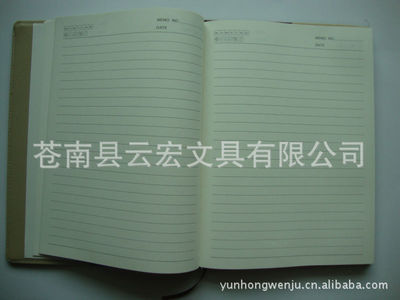 MEMO NO.
DATE
MEMO NO.
DATE
苍南县云宏文具有限公司
yunhongwenju.cn.alibaba.com